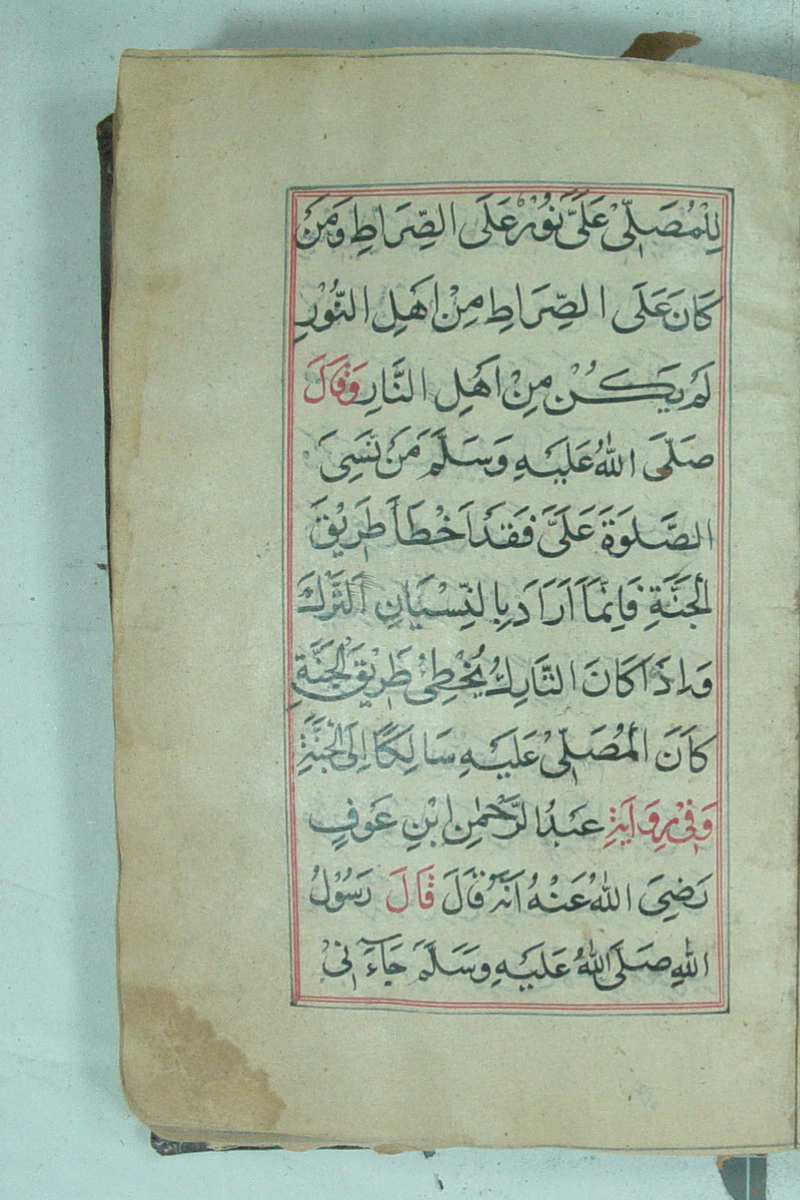 لِلْمُصَلِّىْ عَلَىَّ نُوْرٌ عَلَى الصِّرَاطِ وَمَنْ
كَانَ عَلَى الصِّرَاطِ مِنْ اَهْلِ النُّوْرِ
لَمْ يَكُنْ مِنْ اَهْلِ النَّارِ وَقَالَ
صَلَّى اللهُ عَلَيْهِ وَسَلَّمَ مَنْ نَسِىَ
الصَّلٰوةَ عَلَىَّ فَقَدْ اَخْطَأَ طَرِيْقَ
الْجَنَّةِ فَاِنَّمَا اَرَادَ بِالنِّسْيَانِ اَلتَّرْكَ
وَاِذَا كَانَ التَّارِكُ يُخْطِئُ طَرِيْقَ الْجَنَّةِ
كَانَ الْمُصَلِّىْ عَلَيْهِ سَالِكًا اِلَى الْجَنَّةِ
وَفِىْ رِوَايَةِ عَبْدُ الرَّحْمٰنِ ابْنِ عَوْفٍ
رَضِىَ اللهُ عَنْهُ اَنَّهُ قَالَ قَالَ رَسُوْلُ
اللهِ صَلَّى اللهُ عَلَيْهِ وَسَلَّمَ جَاءَنِىْ